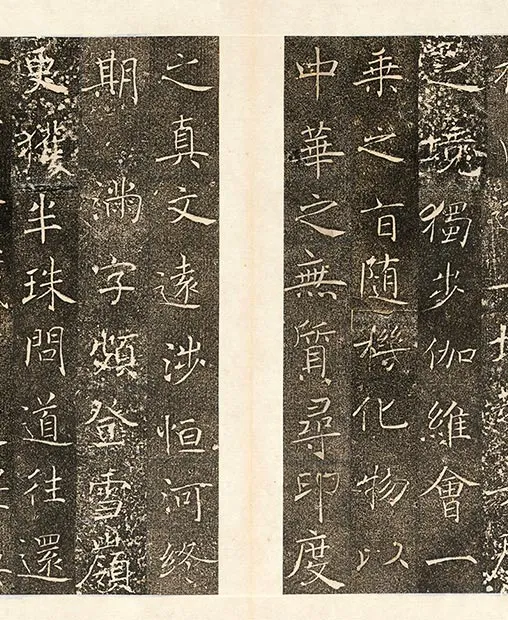 之境獨步伽維會一
乗之旨随機化物以
中華之無質尋印度
之真文遠涉恒河終
期滿字頻登雪嶺
更獲半珠問道往還